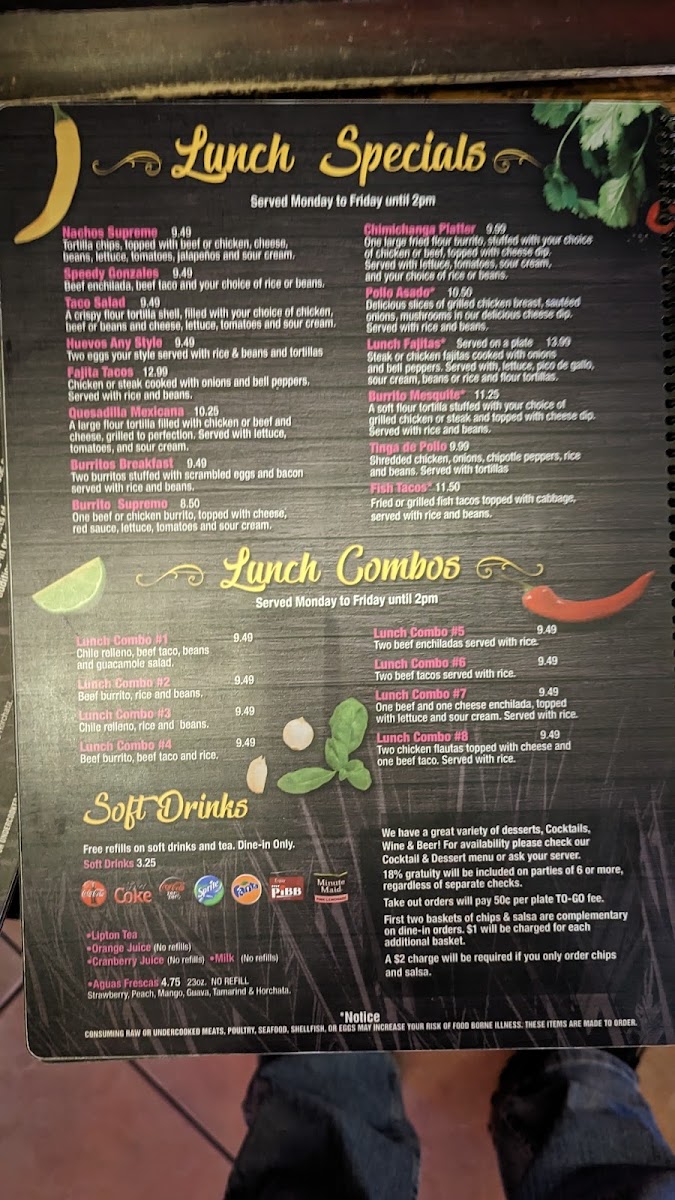 Lunch Specials
Served Monday to Friday until 2pm
Nachos Supreme 9.49
Tortilla chips, topped with beef or chicken, cheese,
beans, lettuce, tomatoes, jalapeños and sour cream.
Speedy Gonzales 9.49
Beef enchilada, beef taco and your choice of rice or beans.
Taco Salad 9.49
A crispy flour tortilla shell, filled with your choice of chicken,
beef or beans and cheese, lettuce, tomatoes and sour cream.
Huevos Any Style 9.49
Two eggs your style served with rice & beans and tortillas
Fajita Tacos 12.99
Chicken or steak cooked with onions and bell peppers.
Served with rice and beans.
Quesadilla Mexicana 10.25
A large flour tortilla filled with chicken or beef and
cheese, grilled to perfection. Served with lettuce,
tomatoes, and sour cream.
Burritos Breakfast 9.49
Two burritos stuffed with scrambled eggs and bacon
served with rice and beans.
Burrito Supremo 8.50
One beef or chicken burrito, topped with cheese,
red sauce, lettuce, tomatoes and sour cream.
Chimichanga Platter 9.99
One large fried flour burrito, stuffed with your choice
of chicken or beef, topped with cheese dip.
Served with lettuce, tomatoes, sour cream,
and your choice of rice or beans.
Pollo Asado* 10.50
Delicious slices of grilled chicken breast, sautéed
onions, mushrooms in our delicious cheese dip.
Served with rice and beans.
Lunch Fajitas* Served on a plate 13.99
Steak or chicken fajitas cooked with onions
and bell peppers. Served with, lettuce, pico de gallo,
sour cream, beans or rice and flour tortillas.
Burrito Mesquite* 11.25
A soft flour tortilla stuffed with your choice of
grilled chicken or steak and topped with cheese dip.
Served with rice and beans.
Tinga de Pollo 9.99
Shredded chicken, onions, chipotle peppers, rice
and beans. Served with tortillas
Fish Tacos* 11.50
Fried or grilled fish tacos topped with cabbage,
served with rice and beans.
Lunch Combos
Served Monday to Friday until 2pm
Lunch Combo #1 9.49
Chile relleno, beef taco, beans
and guacamole salad.
Lunch Combo #2 9.49
Beef burrito, rice and beans.
Lunch Combo #3 9.49
Chile relleno, rice and beans.
Lunch Combo #4 9.49
Beef burrito, beef taco and rice.
Lunch Combo #5 9.49
Two beef enchiladas served with rice.
Lunch Combo #6 9.49
Two beef tacos served with rice.
Lunch Combo #7 9.49
One beef and one cheese enchilada, topped
with lettuce and sour cream. Served with rice.
Lunch Combo #8 9.49
Two chicken flautas topped with cheese and
one beef taco. Served with rice.
Soft Drinks
Free refills on soft drinks and tea. Dine-in Only.
Soft Drinks 3.25
Coke
Sprite
Fanta
PiBB
Minute
Maid
•Lipton Tea
•Orange Juice (No refills)
•Cranberry Juice (No refills) •Milk (No refills)
•Aguas Frescas 4.75 23oz. NO REFILL
Strawberry, Peach, Mango, Guava, Tamarind & Horchata.
We have a great variety of desserts, Cocktails,
Wine & Beer! For availability please check our
Cocktail & Dessert menu or ask your server.
18% gratuity will be included on parties of 6 or more,
regardless of separate checks.
Take out orders will pay 50¢ per plate TO-GO fee.
First two baskets of chips & salsa are complementary
on dine-in orders. $1 will be charged for each
additional basket.
A $2 charge will be required if you only order chips
and salsa.
*Notice
CONSUMING RAW OR UNDERCOOKED MEATS, POULTRY, SEAFOOD, SHELLFISH, OR EGGS MAY INCREASE YOUR RISK OF FOOD BORNE ILLNESS. THESE ITEMS ARE MADE TO ORDER.